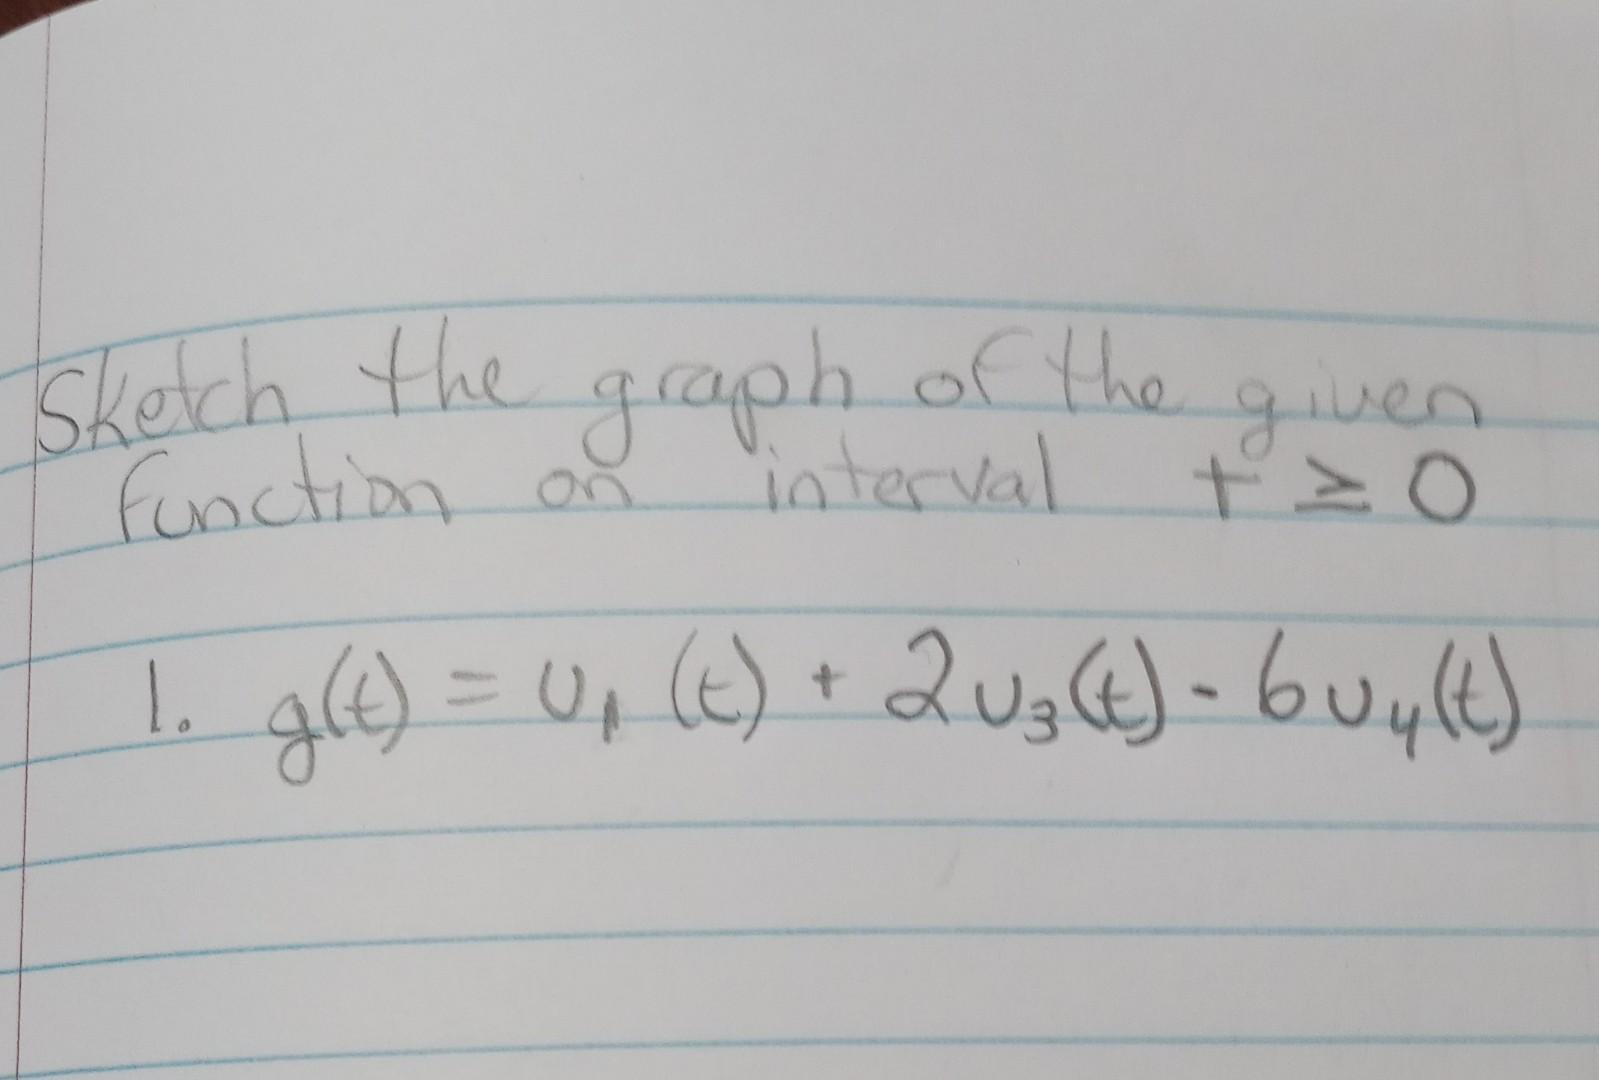 Sketch the graph of the given
function on interval t ≥ 0
1. g(t) = u₁(t) + 2u₃(t) - 6u₄(t)